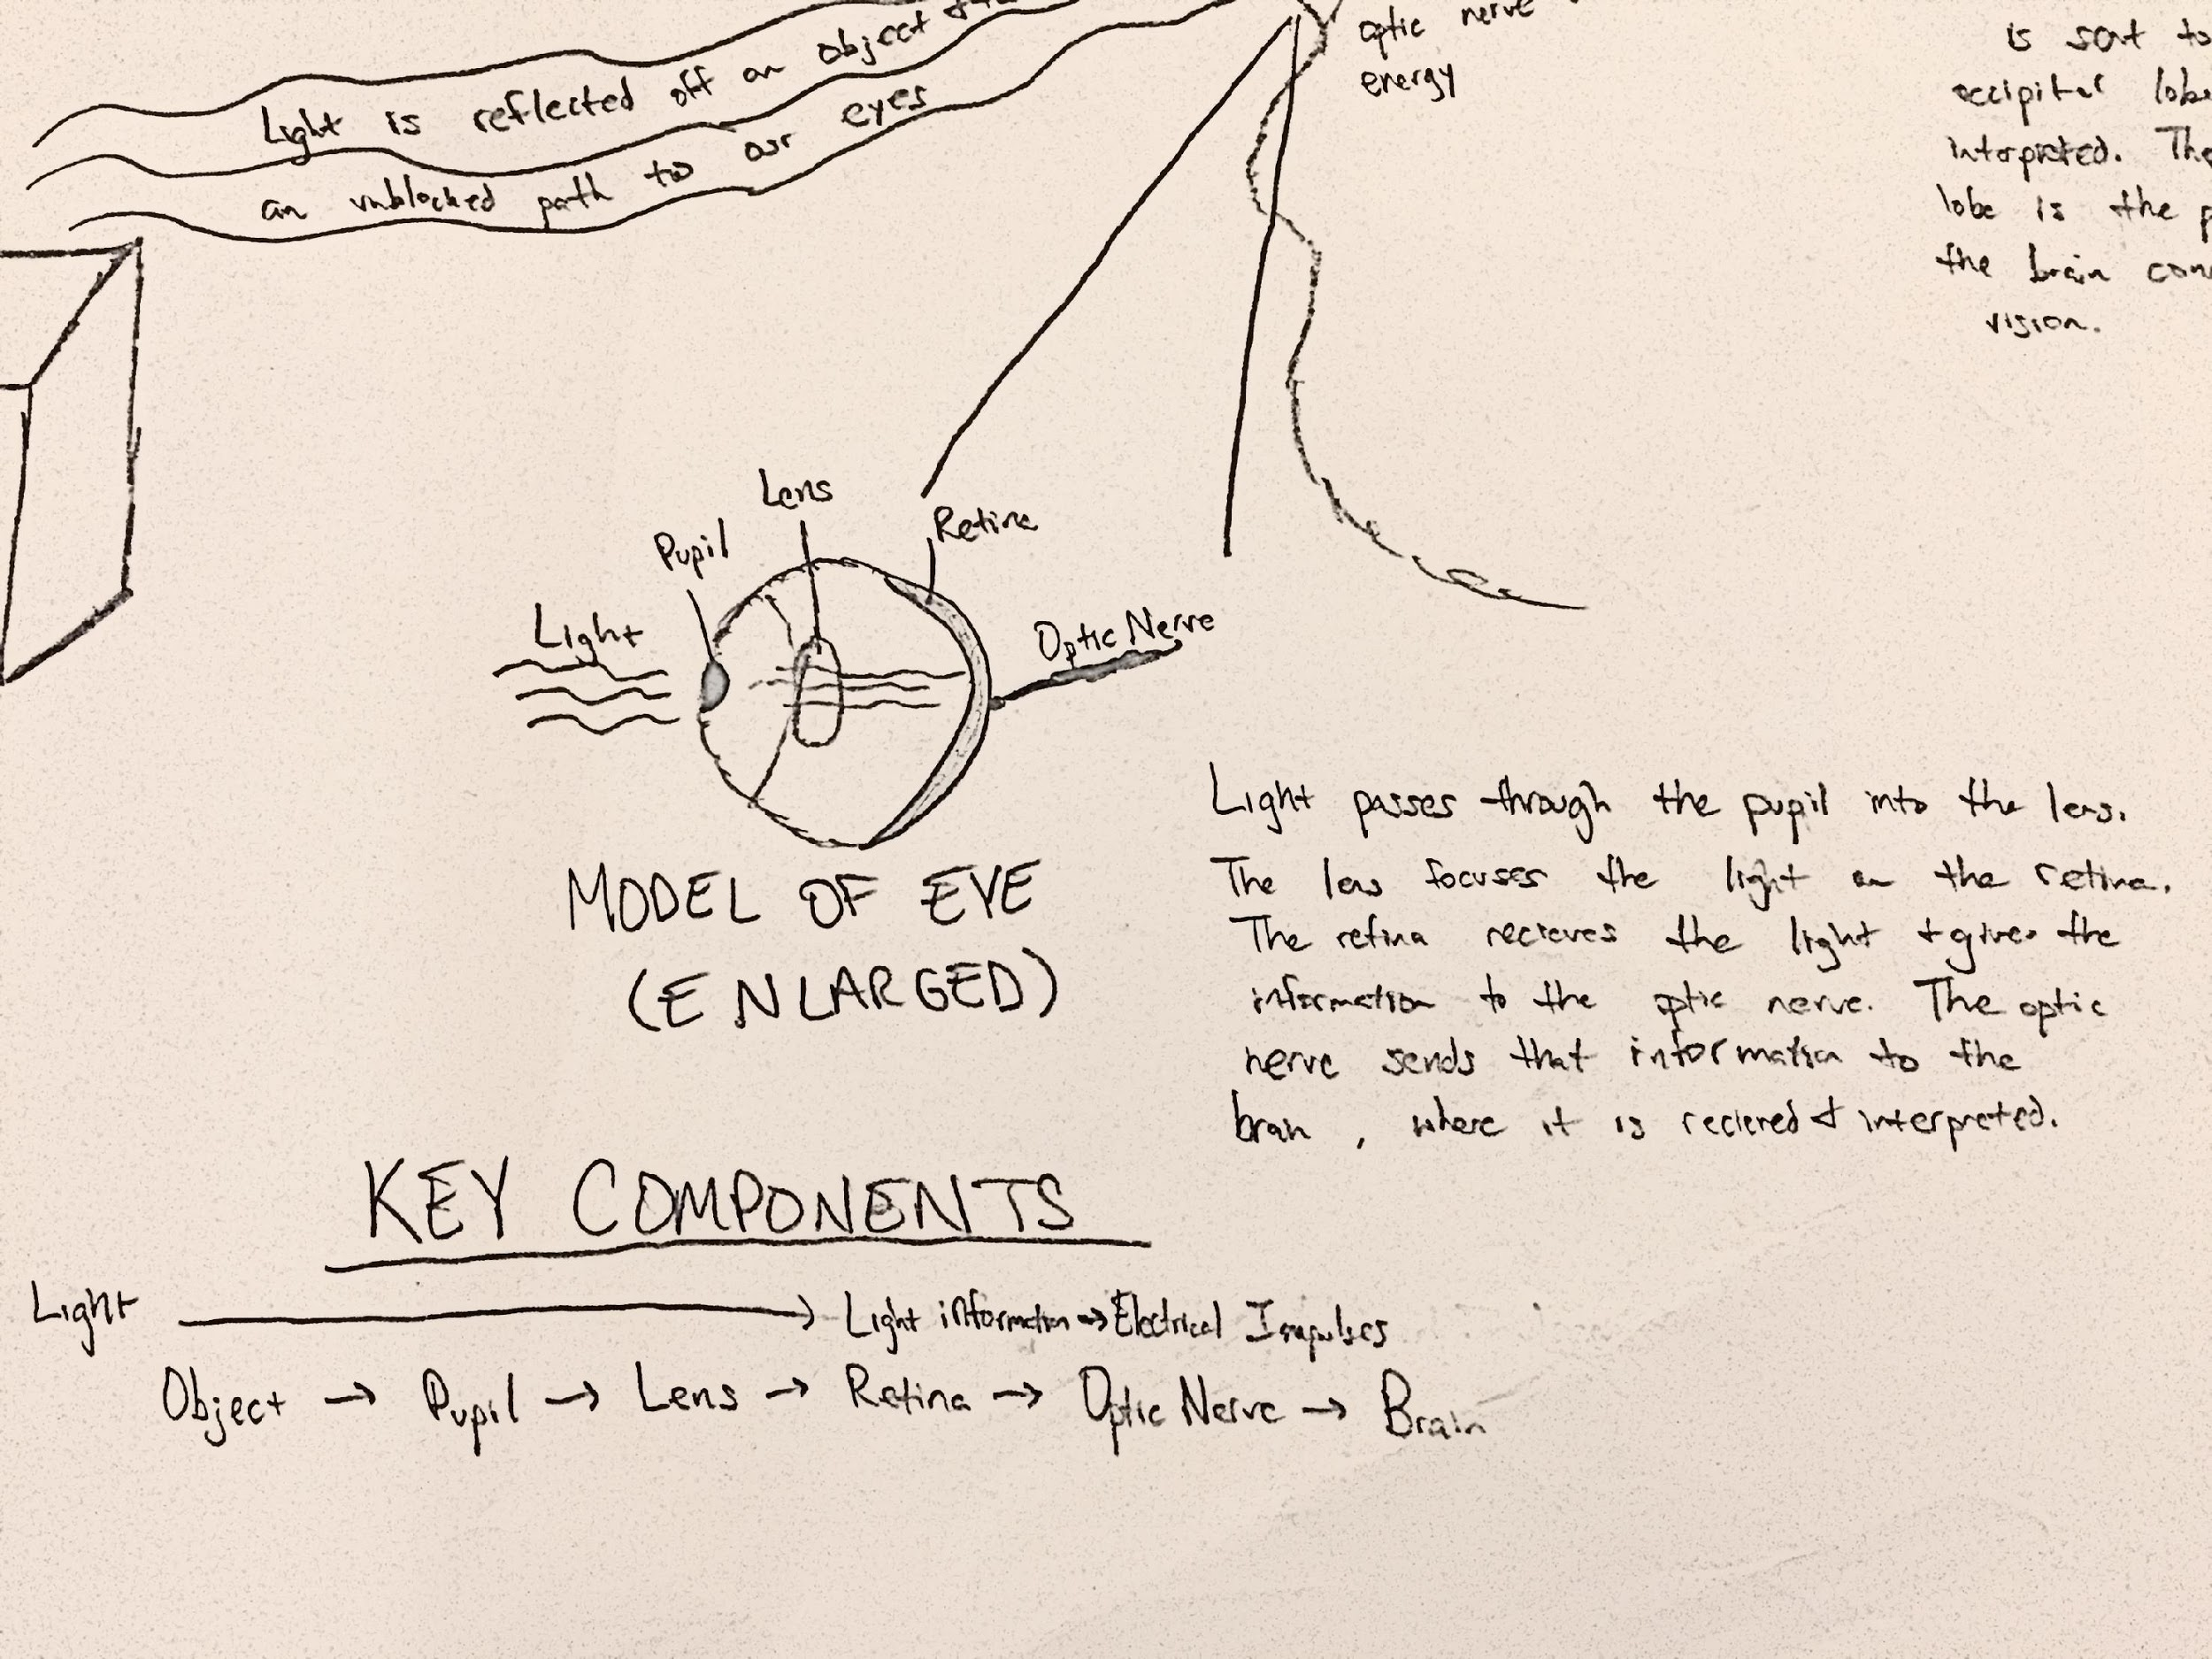 Light is reflected off an object
an unblocked path to our eyes
optic nerve
energy
is sent to
occipital lobe
interpreted. The
lobe is the p
the brain con
vision.
Lens
Pupil
Retina
Light
Optic Nerve
MODEL OF EYE
(ENLARGED)
Light passes through the pupil into the lens.
The lens focuses the light on the retina.
The retina recieves the light + gives the
information to the optic nerve. The optic
nerve sends that information to the
brain, where it is recieved + interpreted.
KEY COMPONENTS
Light → Light information → Electrical Impulses
Object → Pupil → Lens → Retina → Optic Nerve → Brain